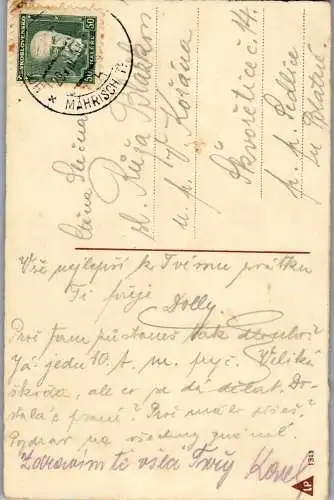 ČESKOSLOVENSKO
50 HALÉŘŮ 50
MÄHRISCH
Ctěná slečna
sl. Růža
u p. Košána
Skvořetice č. 14
p. p. Sedlice
u Blatné
Vše nejlepší k Tvému svátku
Ti přeje
Dolly.
Proč tam zůstaneš tak dlouho?
Já jedu 10. t. m. pryč. Veliká
škoda, ale co se dá dělat. Do-
stala's psaní? Proč málo píšeš?
Pozdrav na všechny známé.
Zdravím tě vřele Tvůj Karel